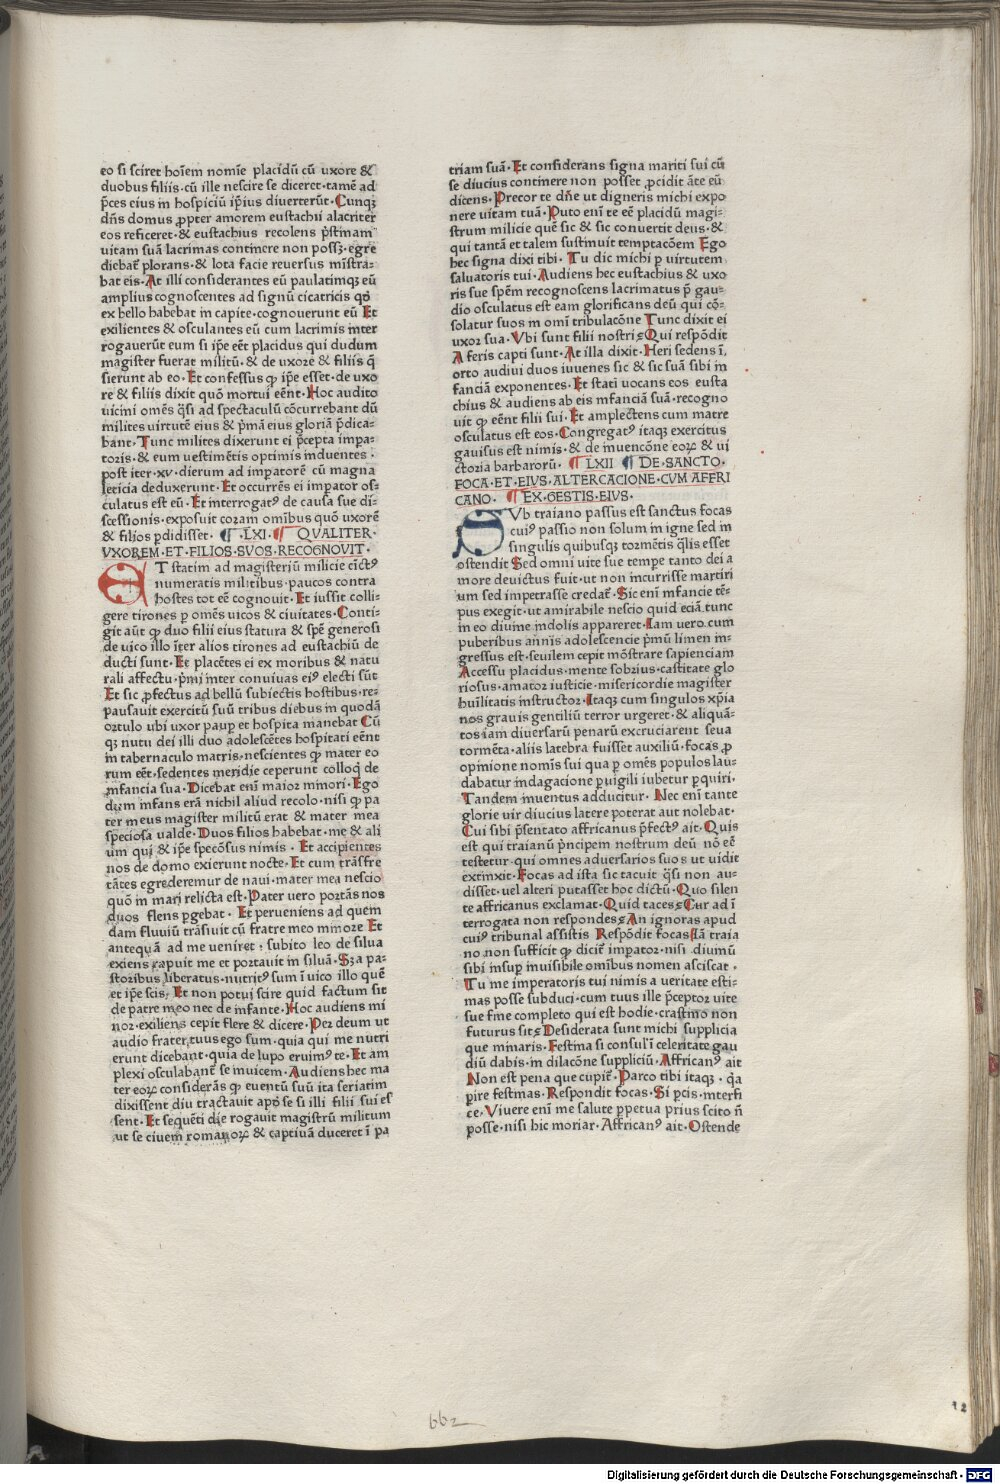 eo si sciret hoīem nomīe placidū cū uxore &
duobus filiis·cū ille nescire se diceret·tamē ad
p̄ces eius in hospiciū ip̄ius diuerterūt·Cunqꝫ
dn̄s domus ꝓpter amorem eustachii alacriter
eos reficeret·& eustachius recolens p̄stinam
uitam suā lacrimas continere non possꝫ·egre
diebat̄ plorans·& lota facie reuersus mīstra-
bat eis·At illi considerantes eū paulatimqꝫ eū
amplius cognoscentes ad signū cicatricis qđ
ex bello habebat in capite·cognouerunt eū Et
exilientes & osculantes eū cum lacrimis inter
rogauerūt eum si ip̄e eēt placidus qui dudum
magister fuerat militū·& de uxore & filiis q̄
sierunt ab eo·Et confessus ꝙ ip̄e esset·de uxo
re & filiis dixit quō mortui eēnt·Hoc audito
uicini omēs q̄si ad spectaculū cōcurrebant dū
milites uirtutē eius & p̄mā eius gloriā p̄dica-
bant·Tunc milites dixerunt ei p̄cepta impa-
toris·& eum uestimētis optimis induentes·
post iter·xv·dierum ad impatorē cū magna
leticia deduxerunt·Et occurrēs ei impator os-
culatus est eū·Et interrogatꝰ de causa sue di-
scessionis·exposuit coram omībus quō uxorē
& filios ꝑdidisset·¶·LXI·¶ QVALITER·
VXOREM·ET·FILIOS·SVOS·RECOGNOVIT·
ET statim ad magisteriū milicie cīctꝰ
numeratis militibus·paucos contra
hostes tot eē cognouit·Et iussit colli-
gere tirones ꝑ omēs uicos & ciuitates·Conti-
git aūt ꝙ duo filii eius statura & spē generosi
de uico illo īter alios tirones ad eustachiū de
ducti sunt·Et placētes ei ex moribus & natu
rali affectu·p̄mi inter conuiuas eiꝰ electi sūt
Et sic ꝓfectus ad bellū subiectis hostibus·re-
pausauit exercitū suū tribus diebus in quodā
ortulo ubi uxor pauꝑ et hospita manebat Cū
qꝫ nutu dei illi duo adolescētes hospitati eēnt
in tabernaculo matris·nescientes ꝙ mater eo
rum eēt·sedentes meridie ceperunt colloq̄ de
infancia sua·Dicebat enī maior minori·Ego
dum infans erā nichil aliud recolo·nisi ꝙ pa
ter meus magister militū erat & mater mea
speciosa ualde·Duos filios habebat·me & ali
um qui & ip̄e specōsus nimis·Et accipientes
nos de domo exierunt nocte·Et cum trāsfre
tātes egrederemur de naui·mater mea nescio
quō in mari relicta est·Pater uero portās nos
duos flens ꝑgebat·Et perueniens ad quem
dam fluuiū trāsiuit cū fratre meo minore Et
antequā ad me ueniret·subito leo de silua
exiens rapuit me et portauit in siluā·Sꝫa pa-
storibus liberatus·nutritꝰ sum ī uico illo quē
et ip̄e scis·Et non potui scire quid factum sit
de patre meo nec de infante·Hoc audiens mi
nor·exiliens cepit flere & dicere·Per deum ut
audio frater tuus ego sum·quia qui me nutri
erunt dicebant·quia de lupo eruimꝰ te·Et am
plexi osculabant̄ se inuicem·Audiens hec ma
ter eoꝝ considerās ꝙ euentū suū ita seriatim
dixissent diu tractauit apđ se si illi filii sui es
sent·Et sequēti die rogauit magistrū militum
ut se ciuem romanoꝝ & captiuā duceret ī pa
triam suā·Et considerans signa mariti sui cū
se diucius continere non posset ꝓcidit āte eū
dicens·Precor te dn̄e ut digneris michi expo
nere uitam tuā·Puto enī te eē placidū magi-
strum milicie quē sic & sic conuertit deus·&
qui tantā et talem sustinuit temptacōem Ego
hec signa dixi tibi·Tu dic michi ꝑ uirtutem
saluatoris tui·Audiens hec eustachius & uxo
ris sue spēm recognoscens lacrimatus p̄ gau-
dio osculatus est eam glorificans deū qui cō-
solatur suos in omī tribulacōne Tunc dixit ei
uxor sua·Vbi sunt filii nostri? Qui respōdit
A feris capti sunt·At illa dixit·Heri sedens ī
orto audiui duos iuuenes sic & sic suā sibi in
fanciā exponentes·Et stati uocans eos eusta
chius & audiens ab eis infanciā suā·recogno
uit ꝙ eēnt filii sui·Et amplectens cum matre
osculatus est eos·Congregatꝰ itaqꝫ exercitus
gauisus est nimis·& de inuencōne eoꝝ & ui
ctoria barbarorū·¶ LXII ¶ DE·SANCTO·
FOCA·ET·EIVS·ALTERCACIONE·CVM AFFRI
CANO·¶ EX·GESTIS·EIVS·
SVb traiano passus est sanctus focas
cuiꝰ passio non solum in igne sed in
singulis quibusqꝫ tormētis q̄lis esset
ostendit Sed omni uite sue tempe tanto dei a
more deuictus fuit·ut non incurrisse martiri
um sed impetrasse credat̄·Sic enī infancie tē-
pus exegit·ut amirabile nescio quid eciā tunc
in eo diuine indolis appareret·Iam uero cum
puberibus annis adolescencie p̄mū limen in-
gressus est·seuilem cepit mōstrare sapienciam
Accessu placidus·mente sobrius·castitate glo
riosus·amator iusticie·misericordie magister
huīlitatis instructor·Itaqꝫ cum singulos xp̄ia
nos grauis gentiliū terror urgeret·& aliquā-
tos iam diuersarū penarū excruciarent seua
tormēta·aliis latebra fuisset auxiliū·focas ꝓ
opinione nominis sui qua ꝑ omēs populos lau-
dabatur indagacione ꝑuigili iubetur ꝑquiri·
Tandem inuentus adducitur·Nec enī tante
glorie uir diucius latere poterat aut nolebat·
Cui sibi p̄sentato affricanus p̄fectꝰ ait·Quis
est qui traianū p̄ncipem nostrum deū nō eē
testetur·qui omnes aduersarios suos ut uidit
extinxit·Focas ad ista sic tacuit q̄si non au-
disset·uel alteri putasset hoc dictū·Quo silen
te affricanus exclamat·Quid taces? Cur ad ī
terrogata non respondes? An ignoras apud
cuiꝰ tribunal assistis Respōdit focas Iā traia
no non sufficit ꝙ dicit̄ impator·nisi diuinū
sibi insuꝑ inuisibile omībus nomen asciscat·
Tu me imperatoris tui nimis a ueritate esti-
mas posse subduci·cum tuus ille p̄ceptor uite
sue fine completo qui est hodie·crastino non
futurus sit? Desiderata sunt michi supplicia
que minaris·Festina si consulī celeritate gau
diū dabis·in dilacōne suppliciū·Affricanꝰ ait
Non est pena que cupit̄·Parco tibi itaqꝫ·q̄a
ꝑire festinas·Respondit focas·Si ꝑcis·interfi
ce·Viuere enī me salute ꝑpetua prius scito n̄
posse·nisi hic moriar·Affricanꝰ ait·Ostende
662
12
Digitalisierung gefördert durch die Deutsche Forschungsgemeinschaft - DFG